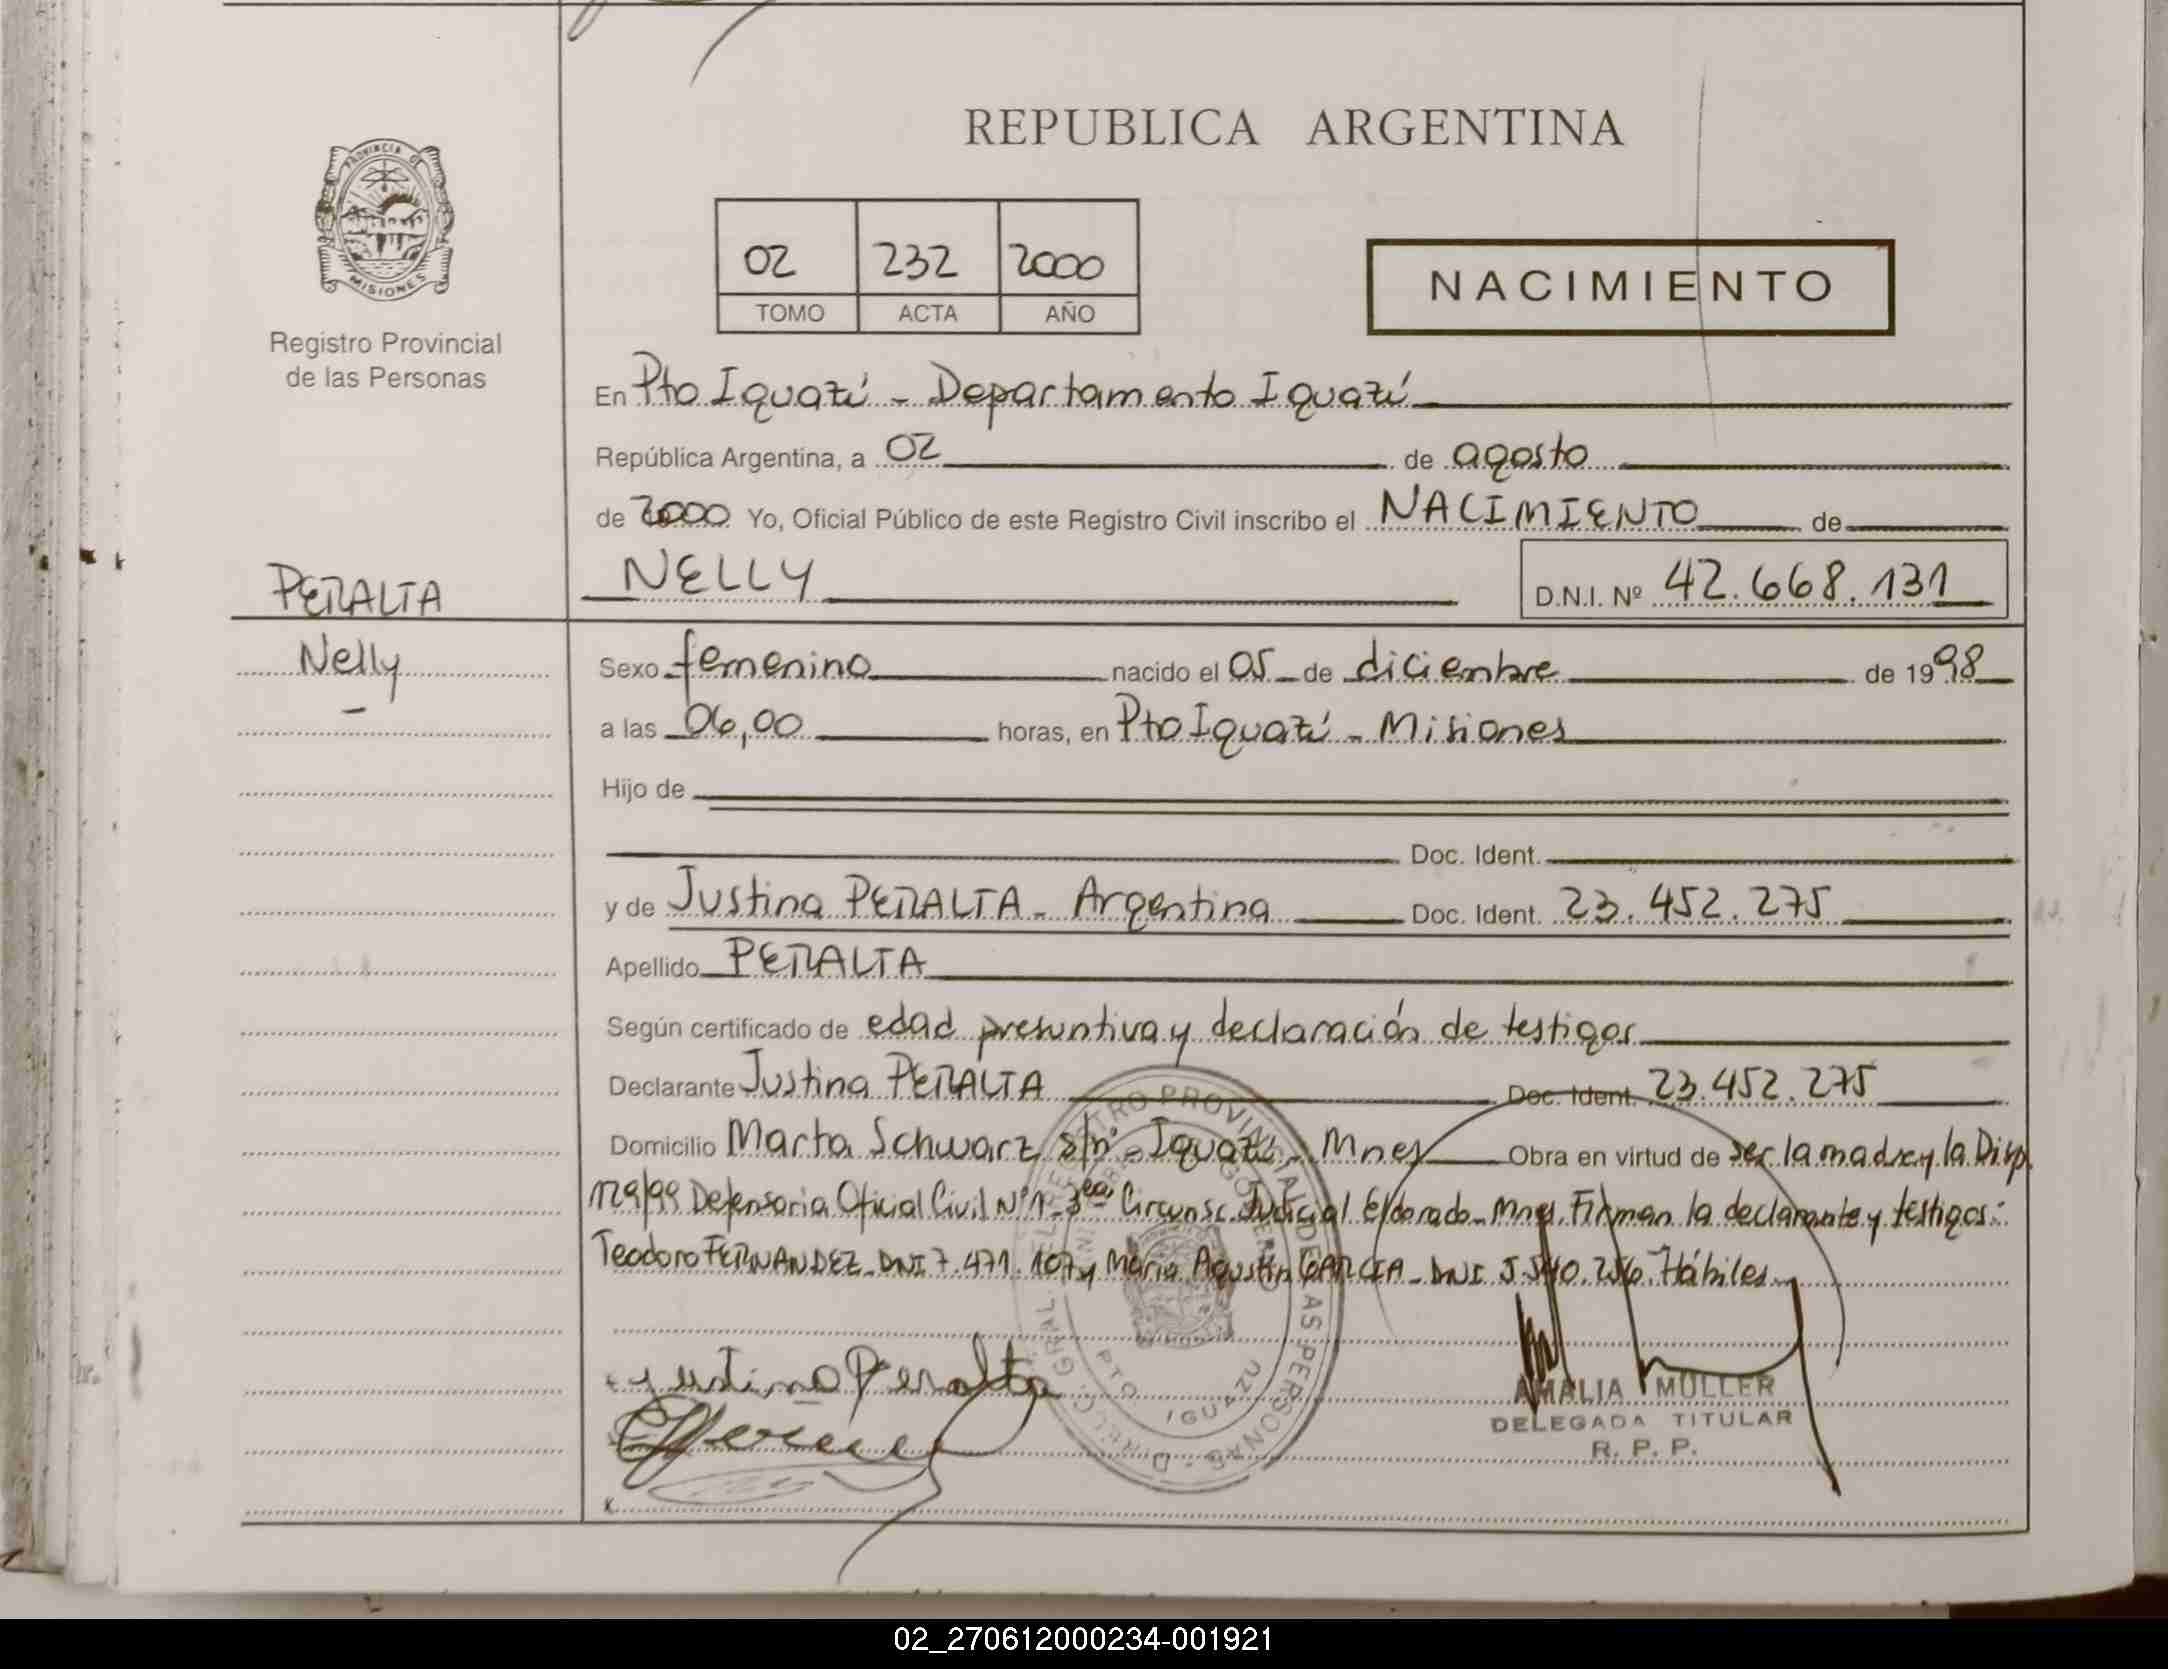 REPUBLICA ARGENTINA
PROVINCIA DE
MISIONES
Registro Provincial
de las Personas
02 232 2000
TOMO ACTA AÑO
NACIMIENTO
En Pto Iguazú - Departamento Iguazú
República Argentina, a 02 de agosto
de 2000 Yo, Oficial Público de este Registro Civil inscribo el NACIMIENTO de
NELLY D.N.I. Nº 42.668.131
PERALTA
Nelly
Sexo femenino nacido el 05 de diciembre de 1998
a las 06,00 horas, en Pto Iguazú - Misiones
Hijo de
Doc. Ident.
y de Justina PERALTA - Argentina Doc. Ident. 23.452.275
Apellido PERALTA
Según certificado de edad presuntiva y declaración de testigos
Declarante Justina PERALTA Doc. Ident. 23.452.275
Domicilio Marta Schwarz s/nº - Iguazú - Mnes Obra en virtud de ser la madre y la Disp.
129/99 Defensoria Oficial Civil Nº 1 - 3ea Circunsc. Judicial Eldorado - Mnes. Firman la declarante y testigos:
Teodoro FERNANDEZ - DNI 7.471.107 y Mario Agustín GARCIA - DNI 5.540.256. Hábiles
Justina Peralta
PTO IGUAZU
AMALIA MULLER
DELEGADA TITULAR
R. P. P.
02_270612000234-001921